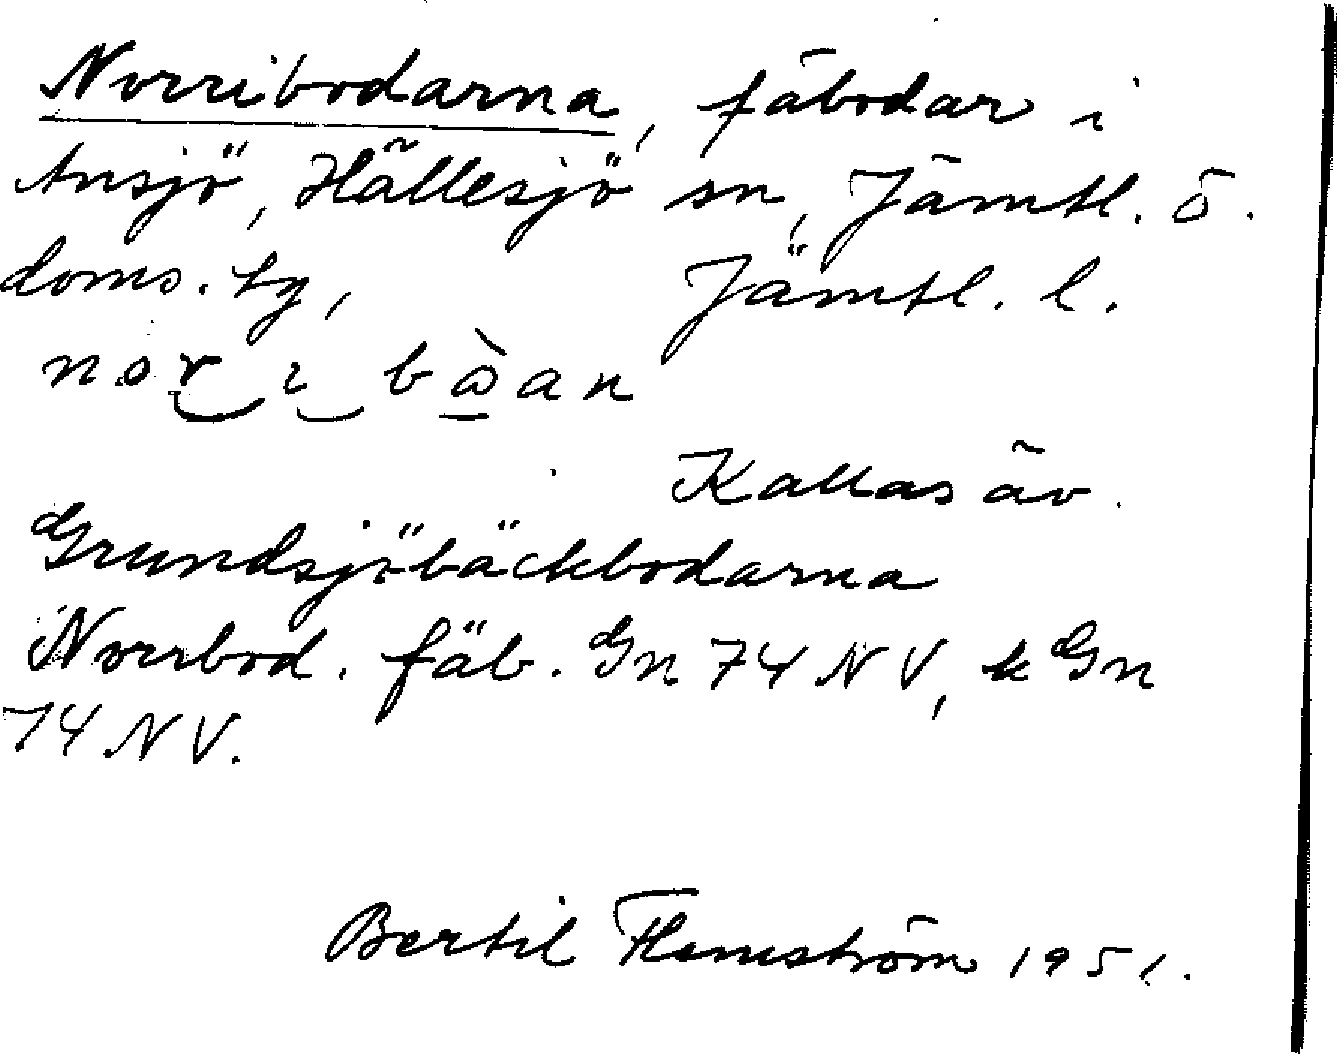 Norribodarna, fäbodar i
Ansjö, Hällesjö sn, Jämtl. ö.
doms. hg, Jämtl. l.
nor i bàan
Kallas äv.
Grundsjöbäckbodarna
Norrbod. fäb. Gn 74 NV, k Gn
74 NV.
Bertil Flemström 1951.